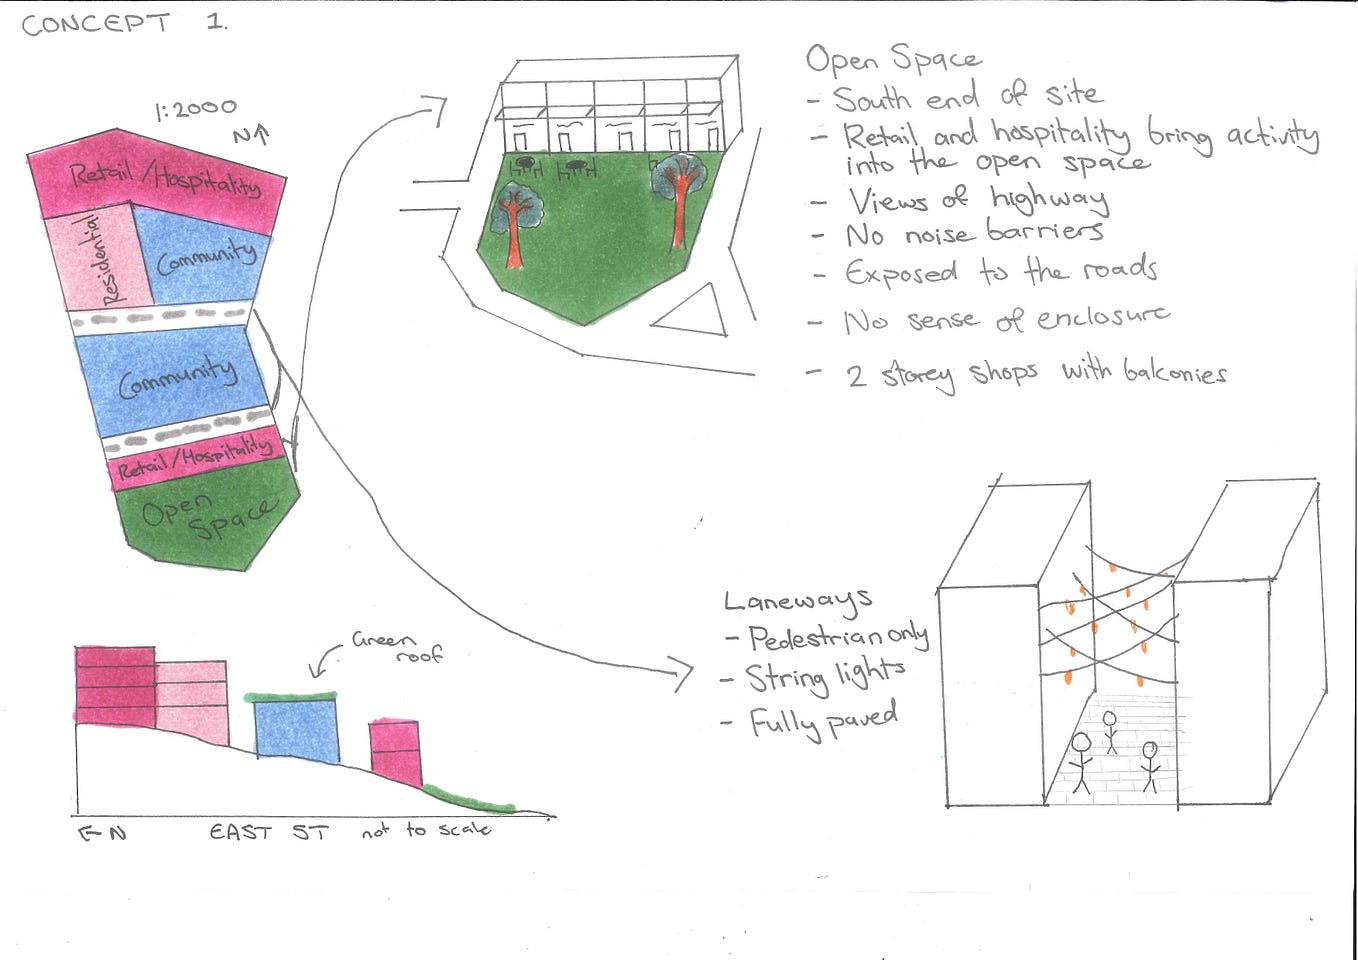 CONCEPT 1.
1:2000
N↑
Retail/Hospitality
Residential
Community
Community
Retail/Hospitality
Open
Space
Open Space
- South end of site
- Retail and hospitality bring activity
into the open space
- Views of highway
- No noise barriers
- Exposed to the roads
- No sense of enclosure
- 2 storey shops with balconies
Laneways
- Pedestrian only
- String lights
- Fully paved
Green
roof
← N
EAST ST
not to scale